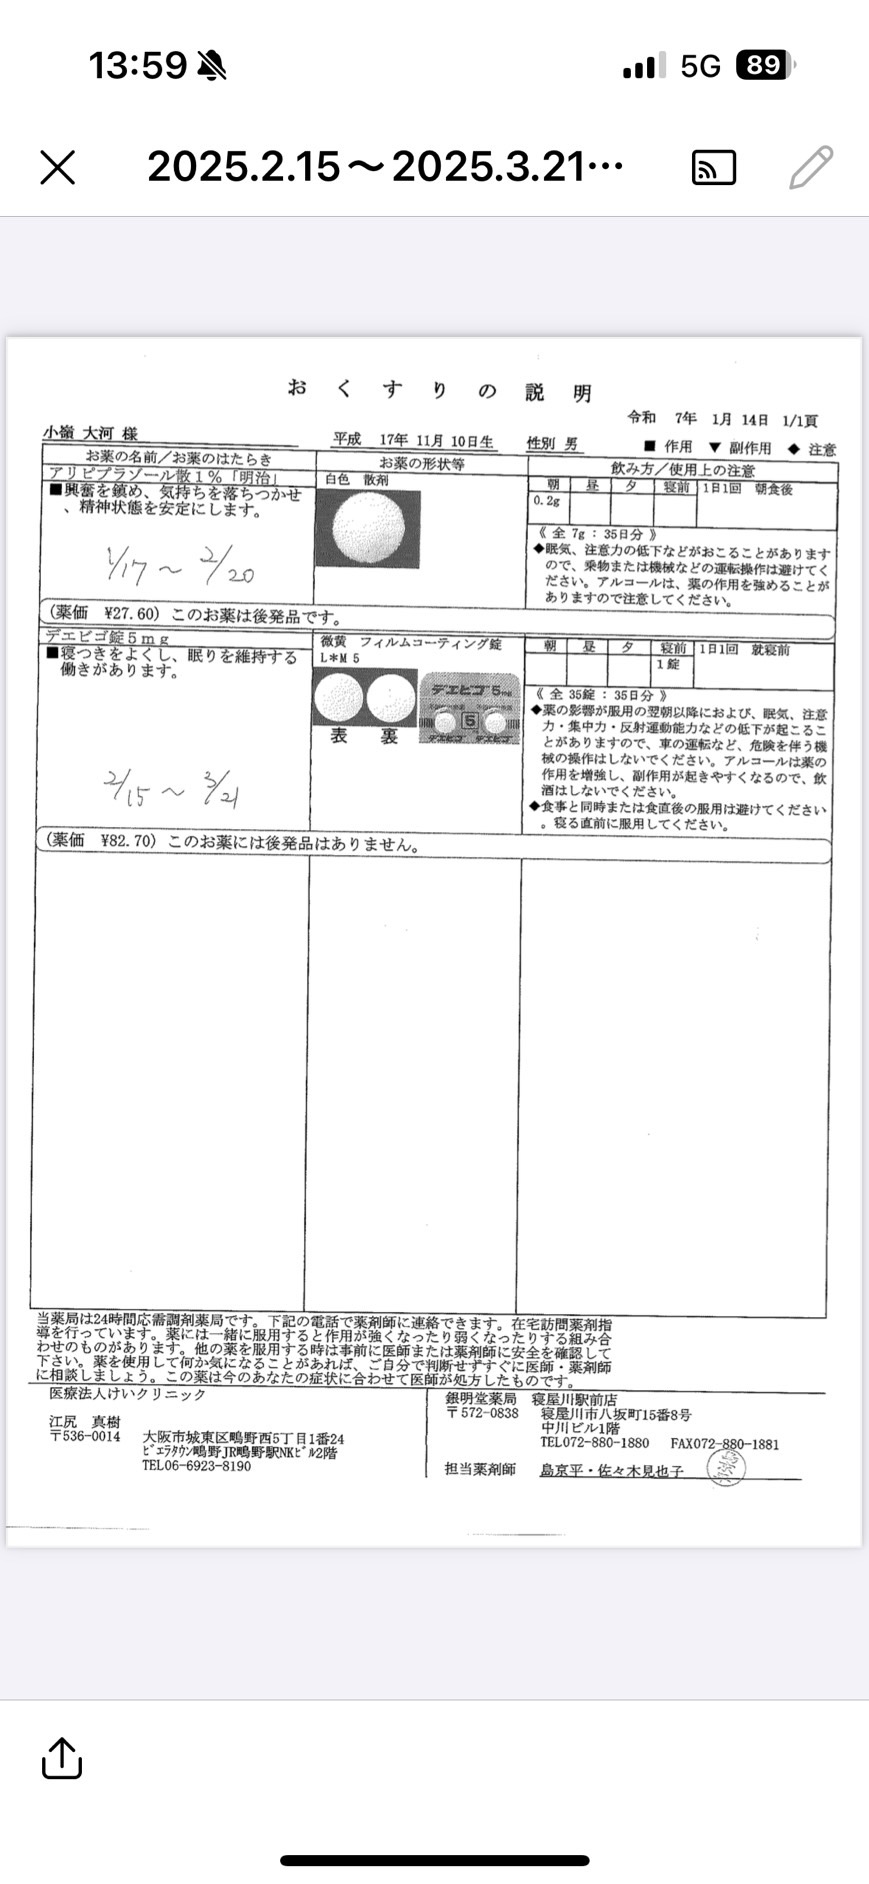 13:59 5G 89
2025.2.15～2025.3.21…
おくすりの説明
令和 7年 1月 14日 1/1頁
小嶺 大河 様 平成 17年 11月 10日生 性別 男 ■ 作用 ▼ 副作用 ◆ 注意
お薬の名前／お薬のはたらき お薬の形状等 飲み方／使用上の注意
アリピプラゾール散１％「明治」 白色 散剤 朝 昼 夕 寝前 1日1回 朝食後
■興奮を鎮め、気持ちを落ちつかせ 0.2g
、精神状態を安定にします。
《 全 7g : 35日分 》
◆眠気、注意力の低下などがおこることがあります
ので、乗物または機械などの運転操作は避けてく
ださい。アルコールは、薬の作用を強めることが
ありますので注意してください。
1/17 ～ 2/20
(薬価 ¥27.60) このお薬は後発品です。
デエビゴ錠５ｍｇ 微黄 フィルムコーティング錠 朝 昼 夕 寝前 1日1回 就寝前
■寝つきをよくし、眠りを維持する L*M 5 1錠
働きがあります。
デエビゴ 5mg
5
デエビゴ デエビゴ
表 裏
《 全 35錠 : 35日分 》
◆薬の影響が服用の翌朝以降におよび、眠気、注意
力・集中力・反射運動能力などの低下が起こるこ
とがありますので、車の運転など、危険を伴う機
械の操作はしないでください。アルコールは薬の
作用を増強し、副作用が起きやすくなるので、飲
酒はしないでください。
◆食事と同時または食直後の服用は避けてください
。寝る直前に服用してください。
2/15 ～ 3/21
(薬価 ¥82.70) このお薬には後発品はありません。
当薬局は24時間応需調剤薬局です。下記の電話で薬剤師に連絡できます。在宅訪問薬剤指
導を行っています。薬には一緒に服用すると作用が強くなったり弱くなったりする組み合
わせのものがあります。他の薬を服用する時は事前に医師または薬剤師に安全を確認して
下さい。薬を使用して何か気になることがあれば、ご自分で判断せずすぐに医師・薬剤師
に相談しましょう。この薬は今のあなたの症状に合わせて医師が処方したものです。
医療法人けいクリニック
江尻 真樹
〒536-0014 大阪市城東区鴫野西5丁目1番24
ﾋﾟｴﾗﾀｳﾝ鴫野JR鴫野駅NKﾋﾞﾙ2階
TEL06-6923-8190
銀明堂薬局 寝屋川駅前店
〒572-0838 寝屋川市八坂町15番8号
中川ビル1階
TEL072-880-1880 FAX072-880-1881
担当薬剤師 島京平・佐々木見也子